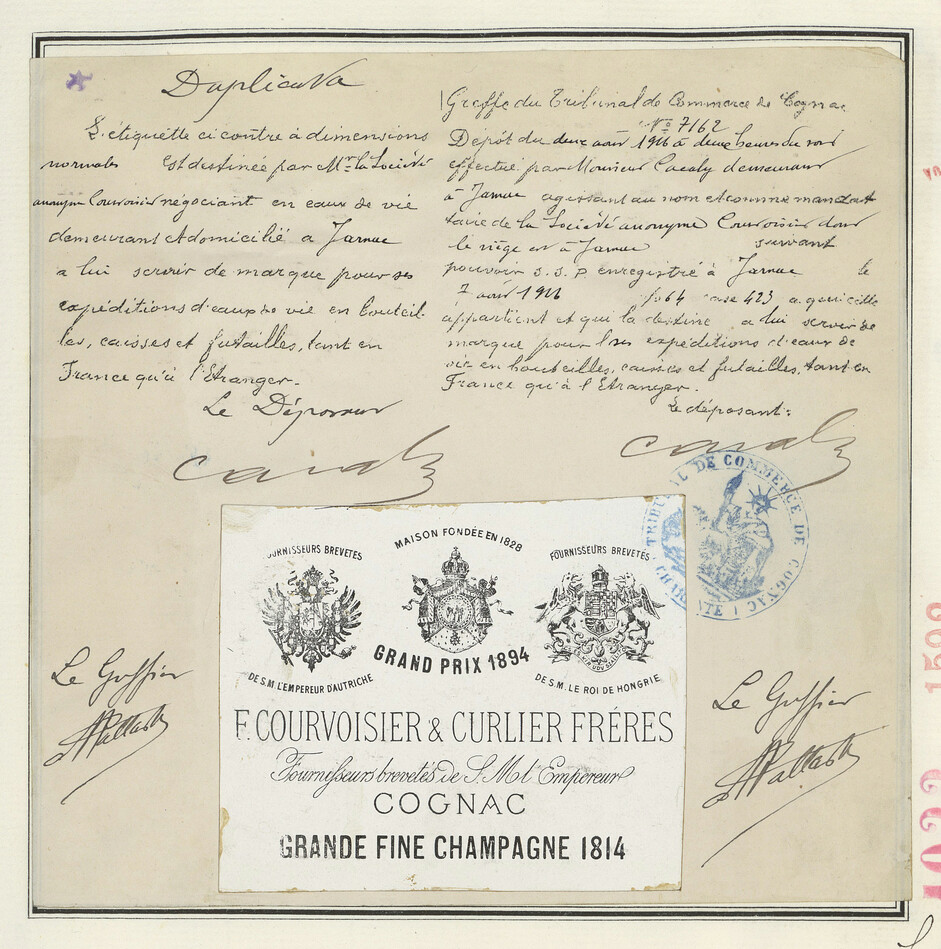 Duplicata
L'étiquette ci contre à dimensions
normales Est destinée par Mr la Société
anonyme Courvoisier négociant en eaux de vie
demeurant et domicilié a Jarnac
a lui servir de marque pour ses
expéditions d'eaux de vie en bouteil
les, caisses et futailles, tant en
France qu'à l'Etranger.
Le Déposant
Greffe du Tribunal de Commerce de Cognac
No 7162
Dépôt du deux août 1916 à deux heures du soir
effectué par Monsieur demeurant
à Jarnac agissant au nom et comme mandat
taire de la Société anonyme Courvoisier dont
le siège est à Jarnac suivant
pouvoir S.S.P enregistré à Jarnac le
7 août 1916 fo 64 case 423 a qui elle
appartient et qui la destine a lui servir de
marque pour ses expéditions d'eaux de
vie en bouteilles, caisses et futailles, tant en
France qu'à l'Etranger.
Le déposant:
TRIBUNAL DE COMMERCE DE COGNAC
MAISON FONDÉE EN 1828
FOURNISSEURS BREVETES
FOURNISSEURS BREVETES
GRAND PRIX 1894
DE S.M. L'EMPEREUR D'AUTRICHE
DE S.M. LE ROI DE HONGRIE
F. COURVOISIER & CURLIER FRÉRES
Fournisseurs brevetés de S. M. l'Empereur
COGNAC
GRANDE FINE CHAMPAGNE 1814
Le Greffier
Le Greffier